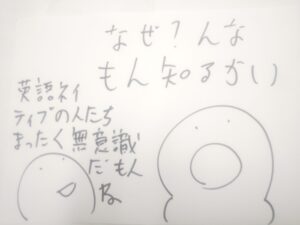 なぜ?んな
もん知るかい
英語ネイ
ティブの人たち
まったく無意識
だもん
ね